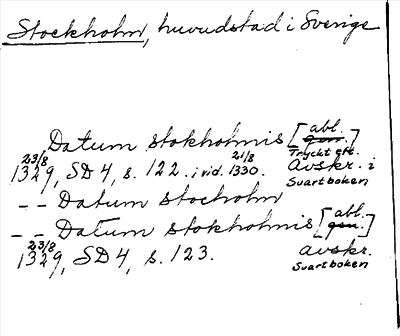 Stockholm, huvudstad i Sverige
Datum stokholmis [abl. gen.]
Tryckt eft.
23/8 1329, SD 4, s. 122. i vid. 21/8 1330. Avskr. i
Svartboken
-- Datum stocholm
-- Datum stokholmis [abl. gen.]
23/8 1329, SD 4, s. 123. avskr.
Svartboken